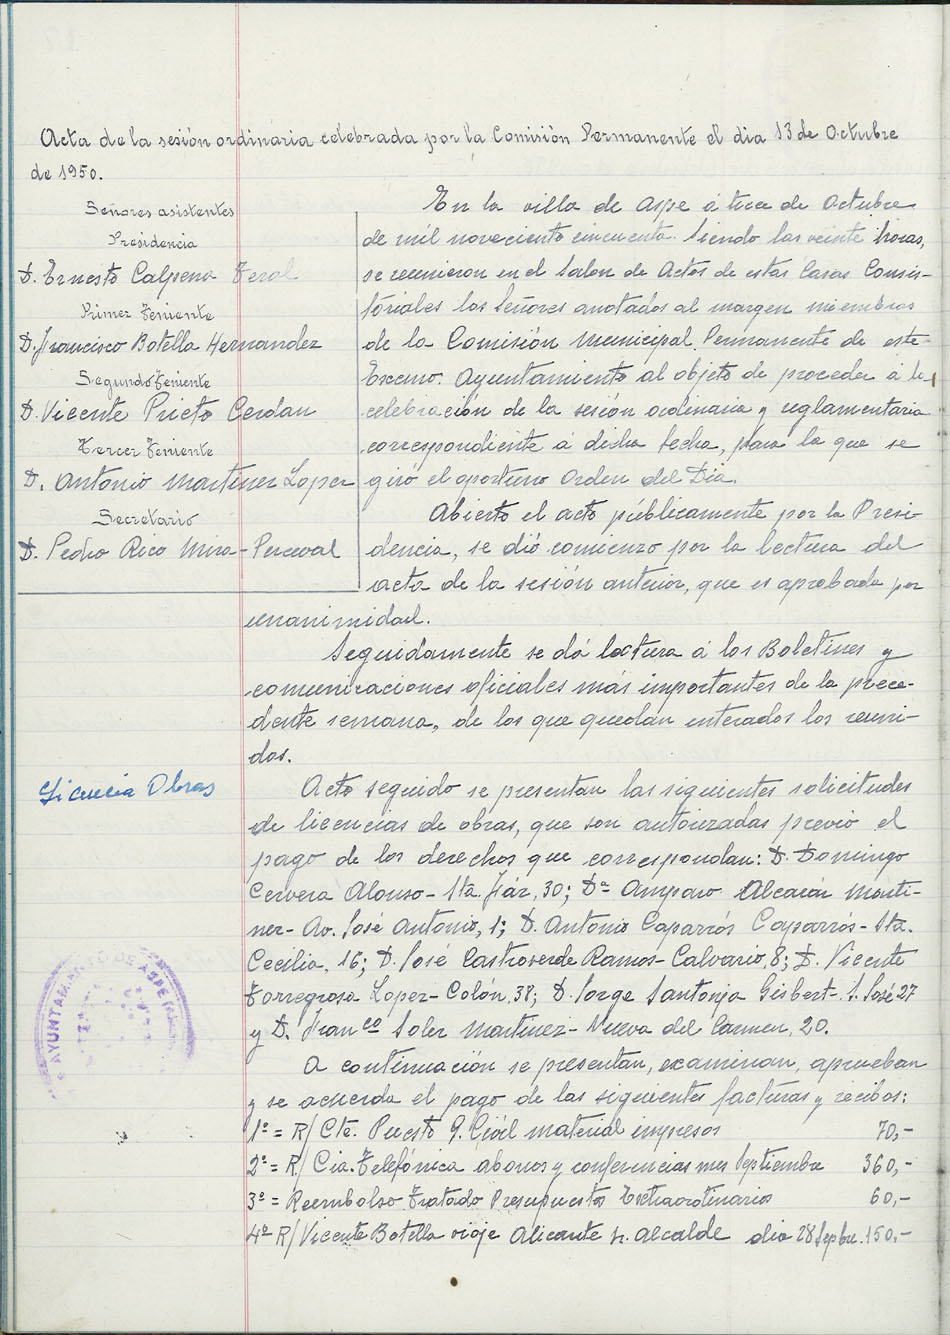 Acta de la sesión ordinaria celebrada por la Comisión Permanente el dia 13 de Octubre
de 1950.
Señores asistentes
Presidencia
D. Ernesto Calpena Terol
Primer Teniente
D. Francisco Botella Hernandez
Segundo Teniente
D. Vicente Prieto Cerdan
Tercer Teniente
D. Antonio Martinez Lopez
Secretario
D. Pedro Rico Mira-Perceval
En la villa de Aspe á trece de Octubre
de mil noveciento cincuenta. Siendo las veinte horas,
se reunieron en el Salon de Actos de estas Casas Consis-
toriales los Señores anotados al margen miembros
de la Comisión Municipal Permanente de este
Excmo. Ayuntamiento al objeto de proceder á la
celebración de la sesión ordinaria y reglamentaria
correspondiente á dicha fecha, para la que se
giró el oportuno Orden del Día.
Abierto el acto públicamente por la Presi-
dencia, se dió comienzo por la lectura del
acta de la sesión anterior, que es aprobada por
unanimidad.
Seguidamente se dá lectura á los Boletines y
comunicaciones oficiales más importantes de la prece-
dente semana, de los que quedan enterados los reuni-
dos.
Licencia Obras
Acto seguido se presentan las siguientes solicitudes
de licencias de obras, que son autorizadas previo el
pago de los derechos que correspondan: D. Domingo
Cervera Alonso- Sta. Faz, 30; Dª Amparo Alcaráz Marti-
nez- Av. José Antonio, 1; D. Antonio Caparrós Caparrós- Sta.
Cecilia, 16; D. José Castroverde Ramos- Calvario, 8; D. Vicente
Torregrosa Lopez- Colón, 38; D. Jorge Santonja Gisbert- S. José 27
y D. Franco Soler Martinez- Nueva del Carmen, 20.
A continuación se presentan, examinan, aprueban
y se acuerda el pago de las siguientes facturas y recibos:
1º = R/ Cte. Puesto G. Civil material impresos 70,-
2º = R/ Cia. Telefónica abonos y conferencias mes Septiembre 360,-
3º = Reembolso Tratado Presupuestos Extraordinarios 60,-
4º R/ Vicente Botella viaje Alicante Sr. Alcalde dia 28 Sepbre. 150,-
AYUNTAMIENTO DE ASPE